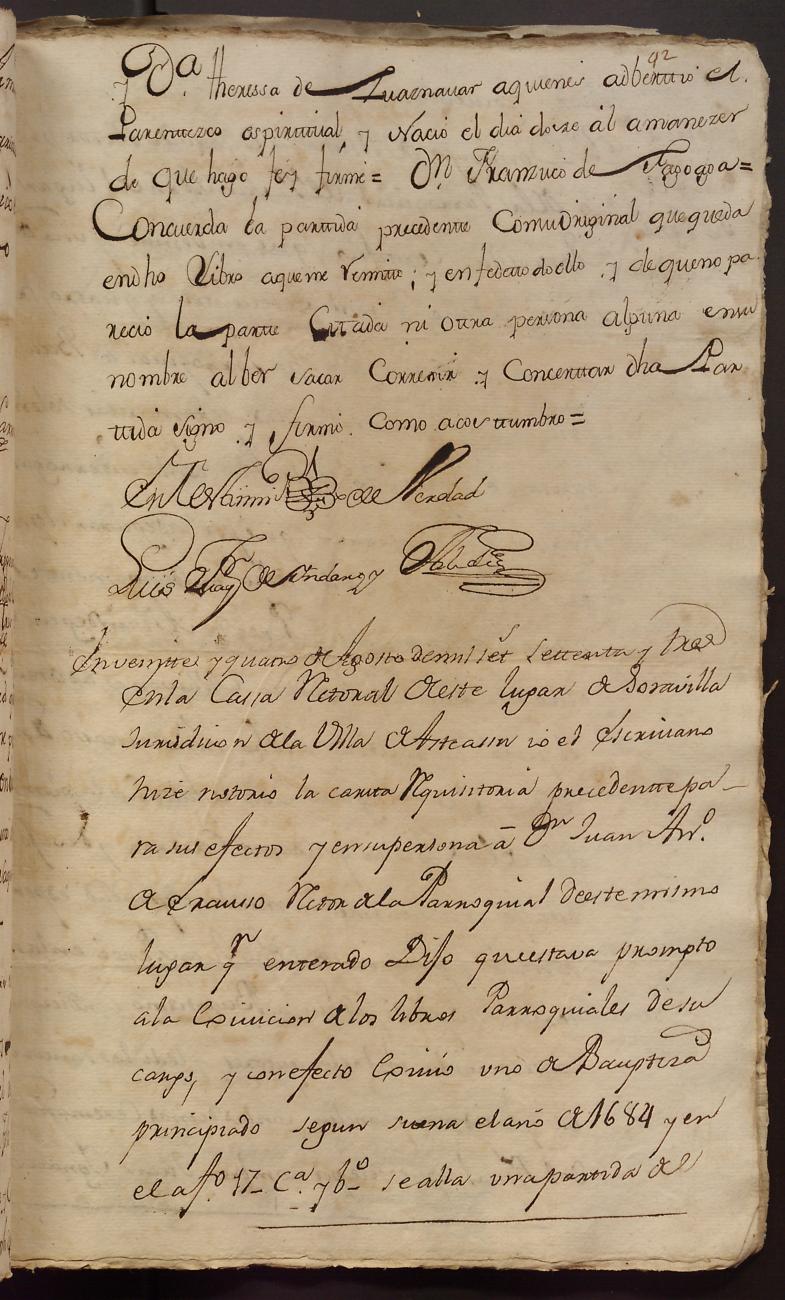 92
y Da. Theressa de Luarnavar aquienes adbertio el
Parenttezco espiritual, y Nacio el dia dorze al amanezer
de que hago fey firme= Dn. Franzuco de Sagogoa=
Concuerda la partida precedente Comuoriginal que queda
endho Libro aqueme Remitto; y enfedettodoello y dequeno pa
recio la partte Cittada ni otra persona alguna ensu
nombre alber sacar Correxir y Concerttar dha Par
ttida signo y firmo Como acosttumbro=
En Testimonio de Verdad
Luis de
En veyntte y quatro de Agosto demil set settenta y tres
en la Cassa Rectoral de este lugar de Soravilla
Jurisdicion de la Villa de Asteassu io el Escrivano
hize notorio la cartta Requisitoria precedentte pa_
ra sus efectos y ensupersona a Dn Juan Anto.
de Erauso Retor de la Parroquial deestemismo
lugar qn enterado Dijo queestava prompto
ala Exivicion de los libros Parroquiales de su
cargo, y conefecto Exivio uno de Bauptizad
principiado segun suena el año de 1684 y en
el afo. 17_ Ca. y bo_ se alla una partida del